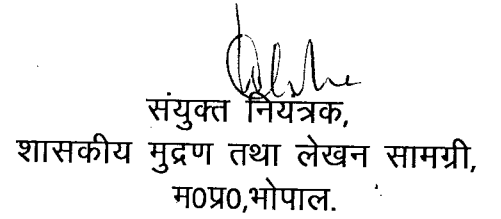 संयुक्त नियत्रक,
शासकीय मुद्रण तथा लेखन सामग्री,
म0प्र0,भोपाल.